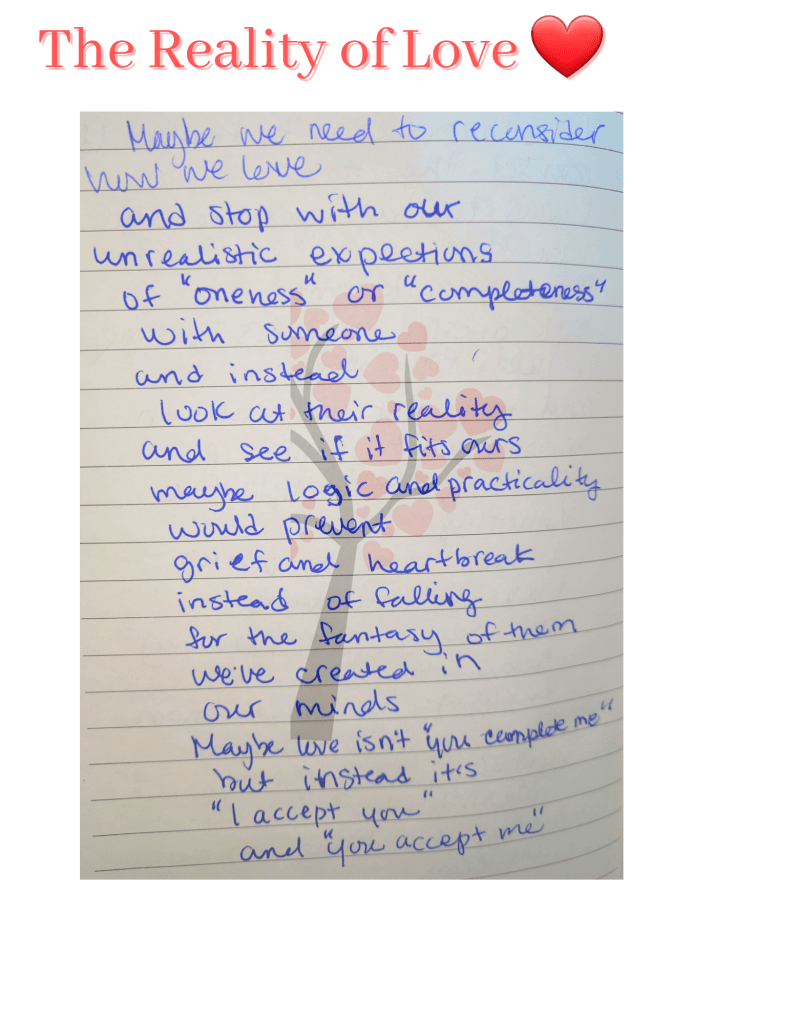 The Reality of Love ❤️
Maybe we need to reconsider
how we love
and stop with our
unrealistic expections
of "oneness" or "completeness"
with someone
and instead
look at their reality
and see if it fits ours
maybe logic and practicality
would prevent
grief and heartbreak
instead of falling
for the fantasy of them
we've created in
our minds
Maybe love isn't "you complete me"
but instead it's
"I accept you"
and "you accept me"